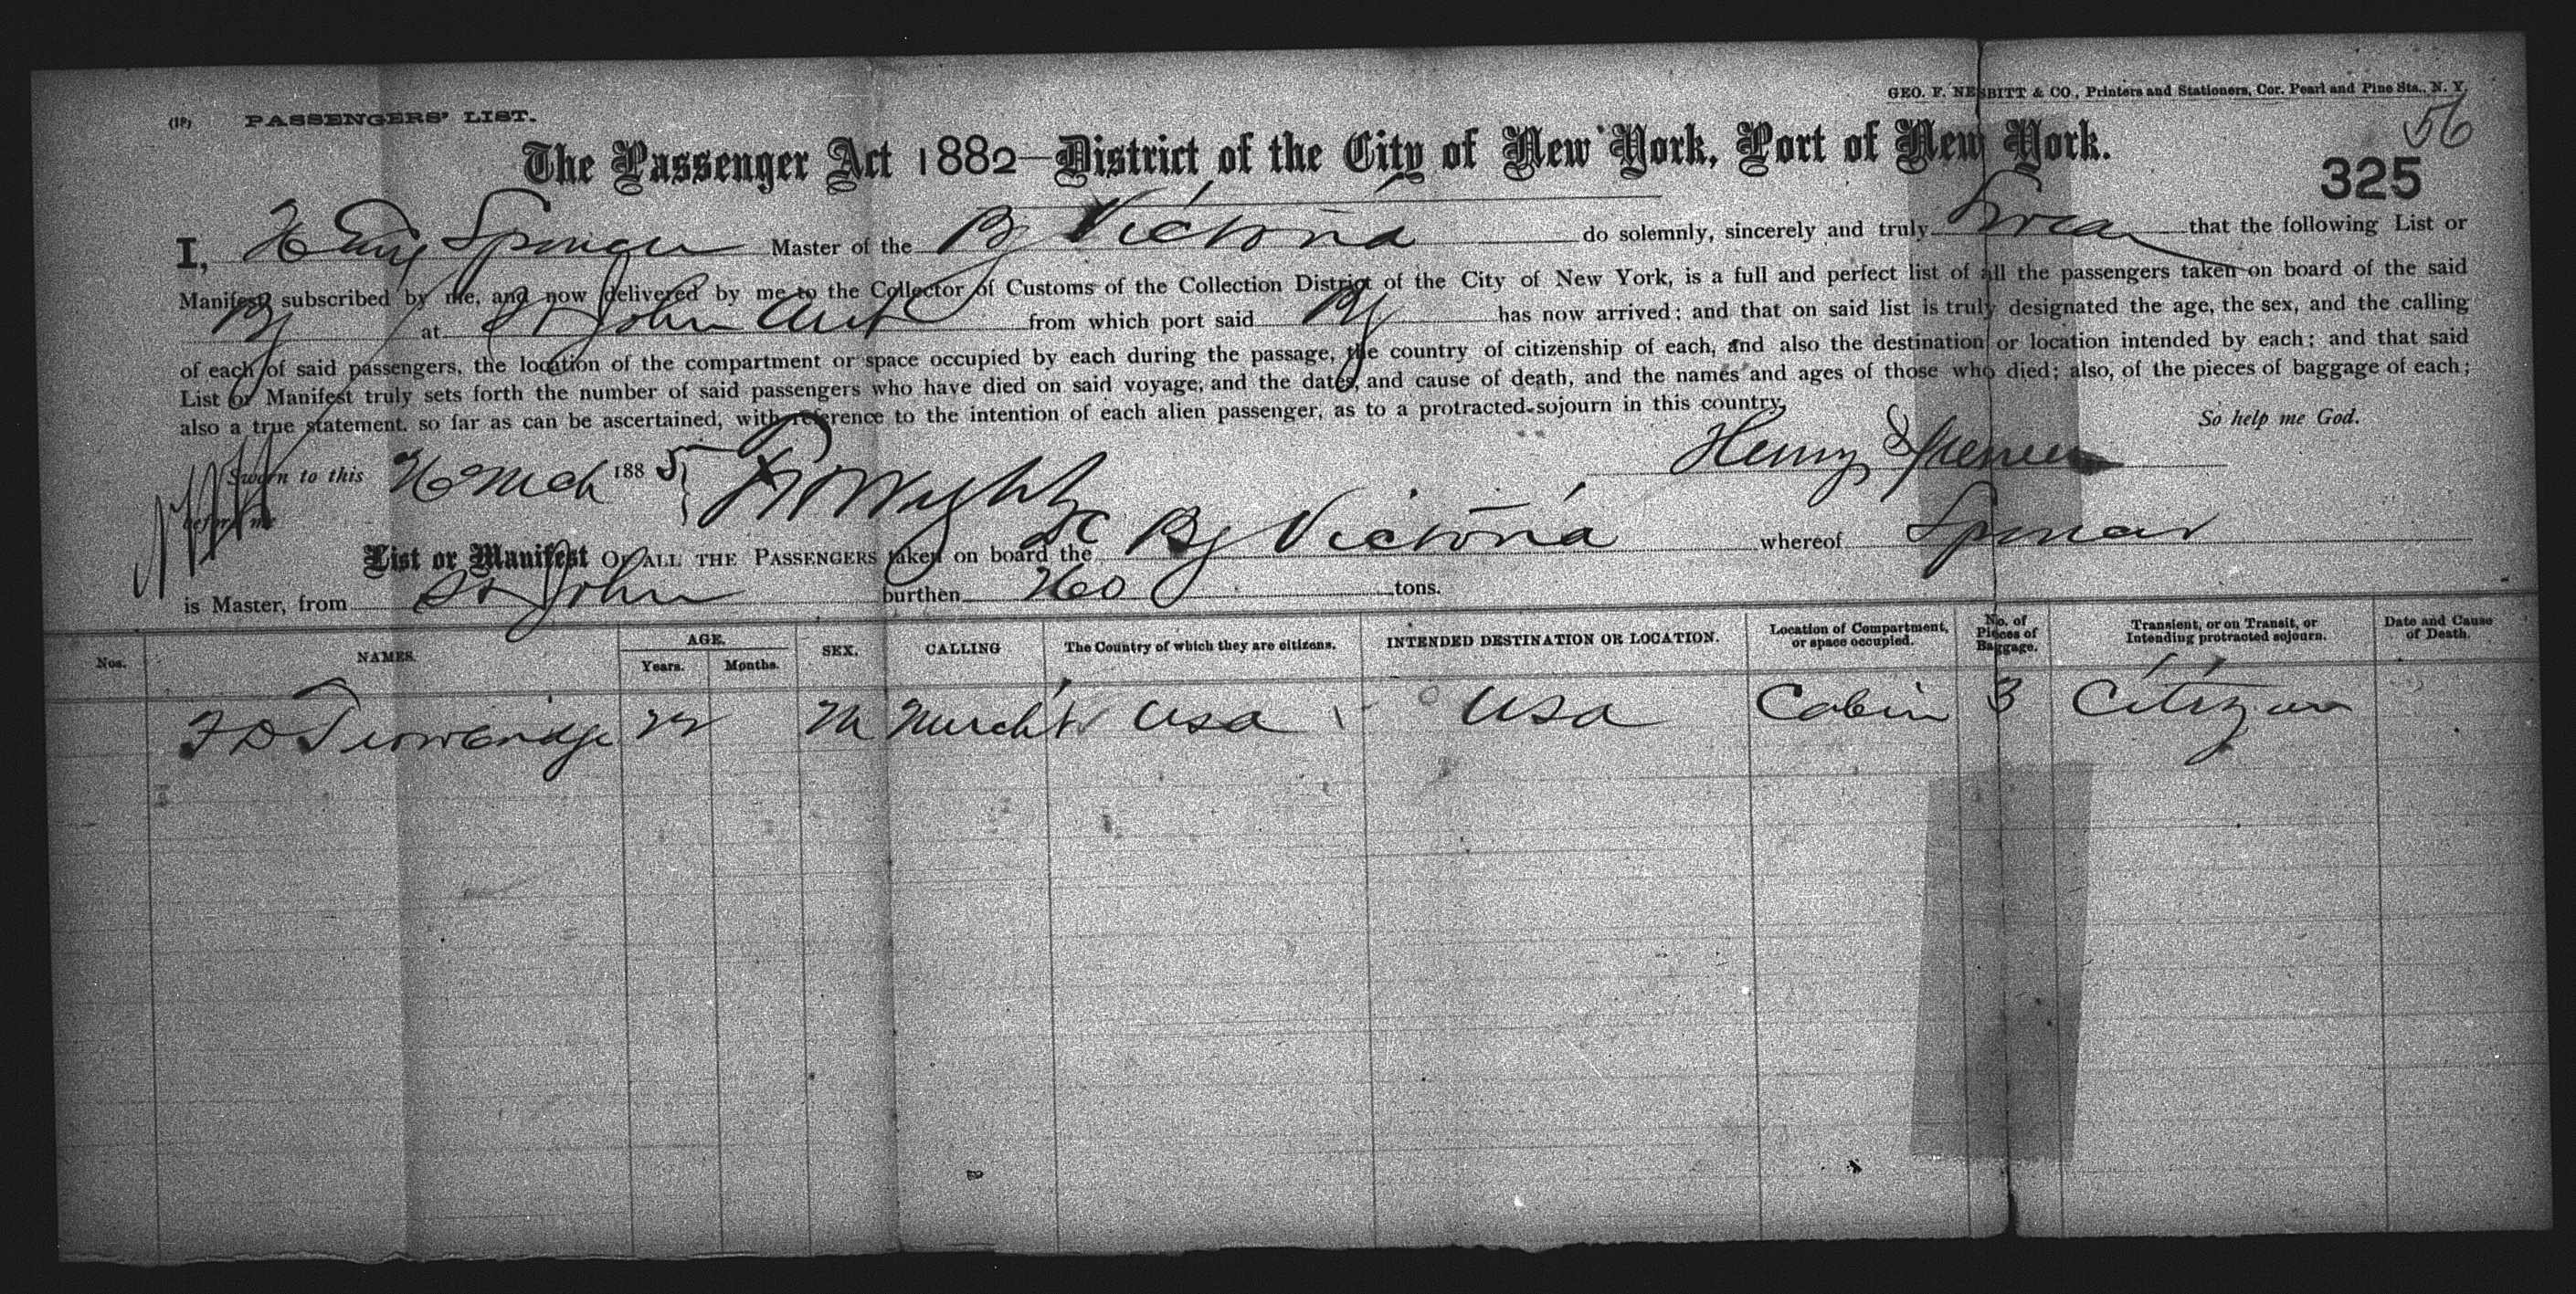 GEO. F. NESBITT & CO., Printers and Stationers, Cor. Pearl and Pine Sts., N. Y.
(18) PASSENGERS' LIST.
56
The Passenger Act 1882—District of the City of New York, Port of New York.
325
I, Henry Spencer Master of the Bg Victoria do solemnly, sincerely and truly Swear that the following List or
Manifest, subscribed by me, and now delivered by me to the Collector of Customs of the Collection District of the City of New York, is a full and perfect list of all the passengers taken on board of the said
Bg at St John from which port said Bg has now arrived; and that on said list is truly designated the age, the sex, and the calling
of each of said passengers, the location of the compartment or space occupied by each during the passage, the country of citizenship of each, and also the destination or location intended by each; and that said
List or Manifest truly sets forth the number of said passengers who have died on said voyage, and the dates, and cause of death, and the names and ages of those who died; also, of the pieces of baggage of each;
also a true statement, so far as can be ascertained, with reference to the intention of each alien passenger, as to a protracted sojourn in this country.
So help me God.
Henry Spencer
Sworn to this Mch 1885
before me
List or Manifest OF ALL THE PASSENGERS taken on board the Bg Victoria whereof Spencer
is Master, from St John burthen 260 tons.
Nos. NAMES. AGE. Years. Months. SEX. CALLING The Country of which they are citizens. INTENDED DESTINATION OR LOCATION. Location of Compartment, or space occupied. No. of Pieces of Baggage. Transient, or on Transit, or Intending protracted sojourn. Date and Cause of Death.
F D Trowbridge M Mercht Usa Usa Cabin 3 Citizen